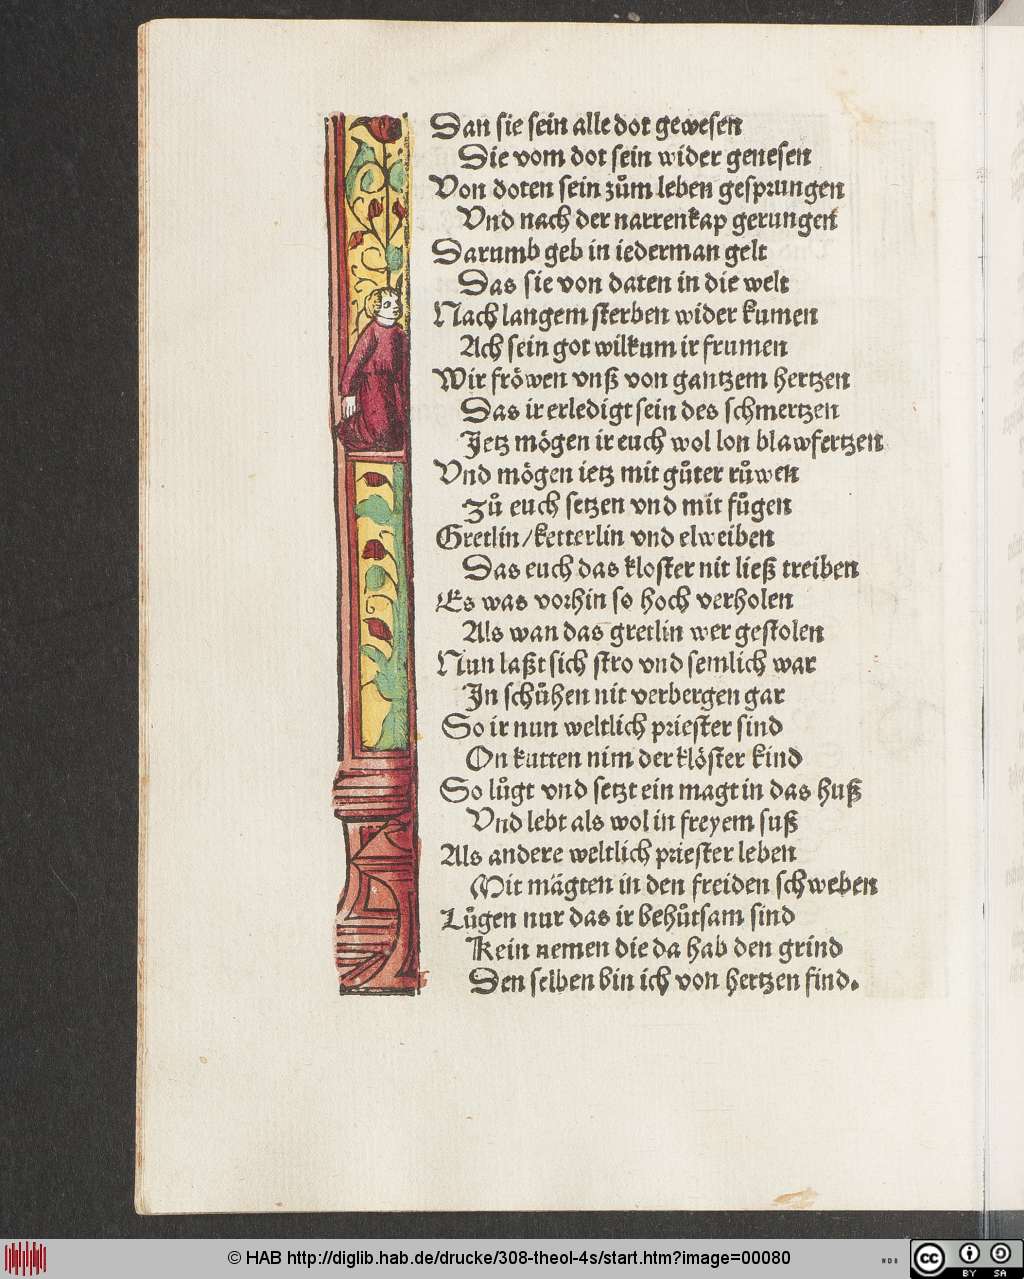 Dan sie sein alle dot gewesen
Die vom dot sein wider genesen
Von doten sein zům leben gesprungen
Vnd nach der narrenkap gerungen
Darumb geb in iederman gelt
Das sie von daten in die welt
Nach langem sterben wider kumen
Ach sein got wilkum ir frumen
Wir fröwen vnß von gantzem hertzen
Das ir erledigt sein des schmertzen
Jetz mögen ir euch wol lon blawfertzen
Vnd mögen ietz mit gůter růwen
Zů euch setzen vnd mit fůgen
Gretlin/ketterlin vnd elweiben
Das euch das kloster nit ließ treiben
Es was vorhin so hoch verholen
Als wan das gretlin wer gestolen
Nun laßt sich stro vnd semlich war
In schůhen nit verbergen gar
So ir nun weltlich priester sind
On kutten nim der klöster kind
So lůgt vnd setzt ein magt in das huß
Vnd lebt als wol in freyem suß
Als andere weltlich priester leben
Mit mägten in den freiden schweben
Lůgen nur das ir behůtsam sind
Kein nemen die da hab den grind
Den selben bin ich von hertzen find.
© HAB http://diglib.hab.de/drucke/308-theol-4s/start.htm?image=00080
WDB
cc BY SA